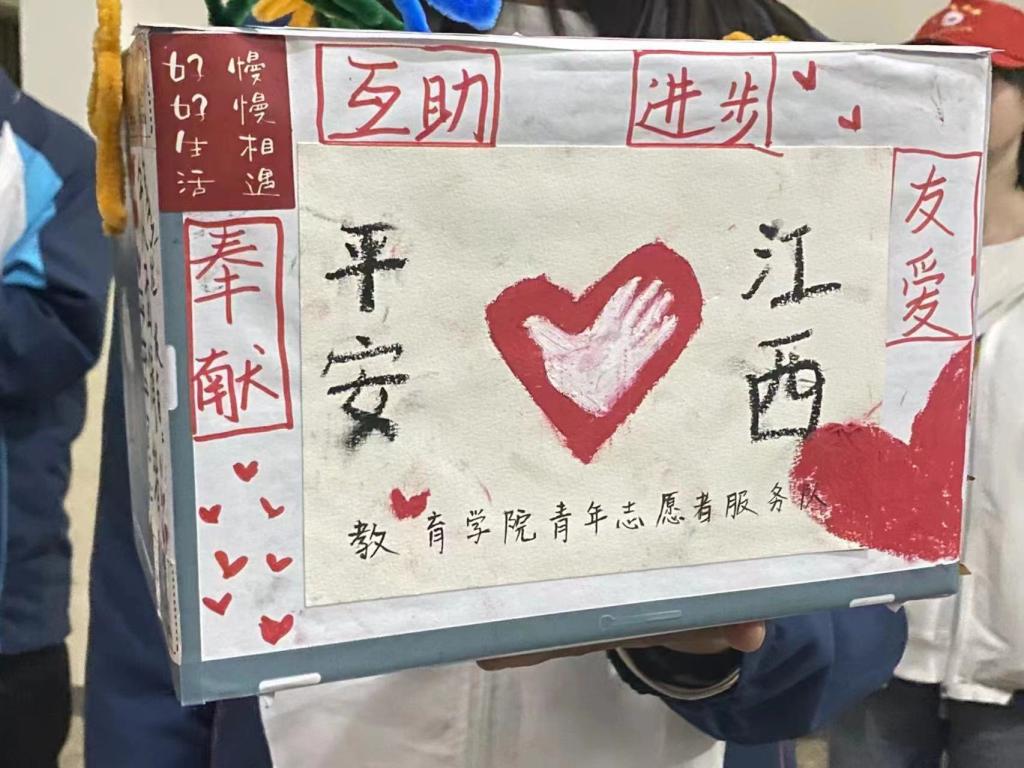 慢慢相遇
好好生活
互助
进步
友爱
奉献
平安
江西
教育学院青年志愿者服务队